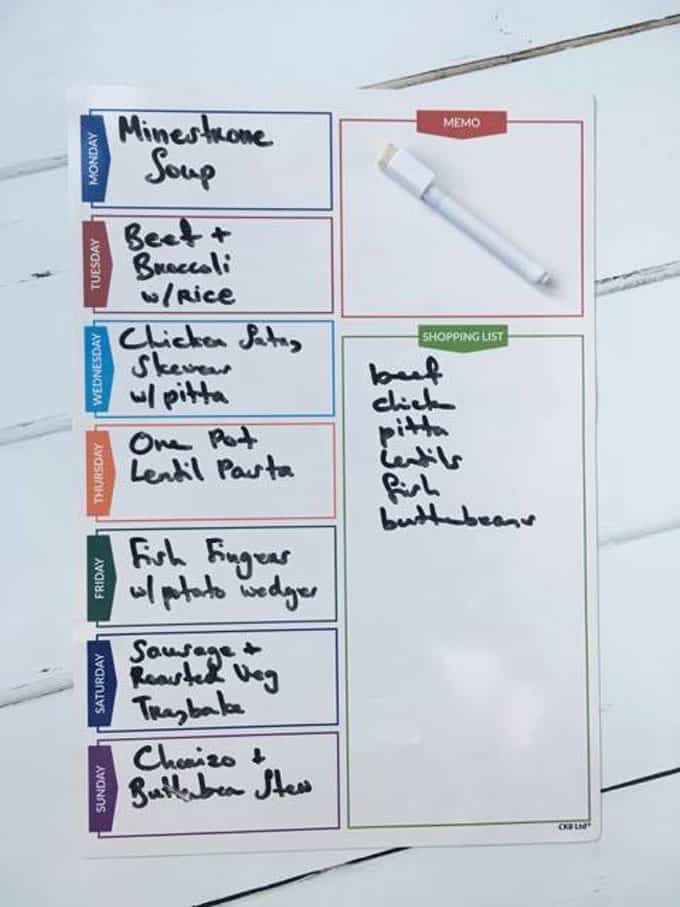 MONDAY
Minestrone
Soup
TUESDAY
Beef +
Broccoli
w/RICE
WEDNESDAY
Chicken Satay
Skewers
w/ pitta
THURSDAY
One Pot
Lentil Pasta
FRIDAY
Fish Fingers
w/ potato wedges
SATURDAY
Sausage +
Roasted Veg
Traybake
SUNDAY
Chorizo +
Butterbean Stew
MEMO
SHOPPING LIST
beef
chicken
pitta
lentils
fish
butterbeans
CKB Ltd®